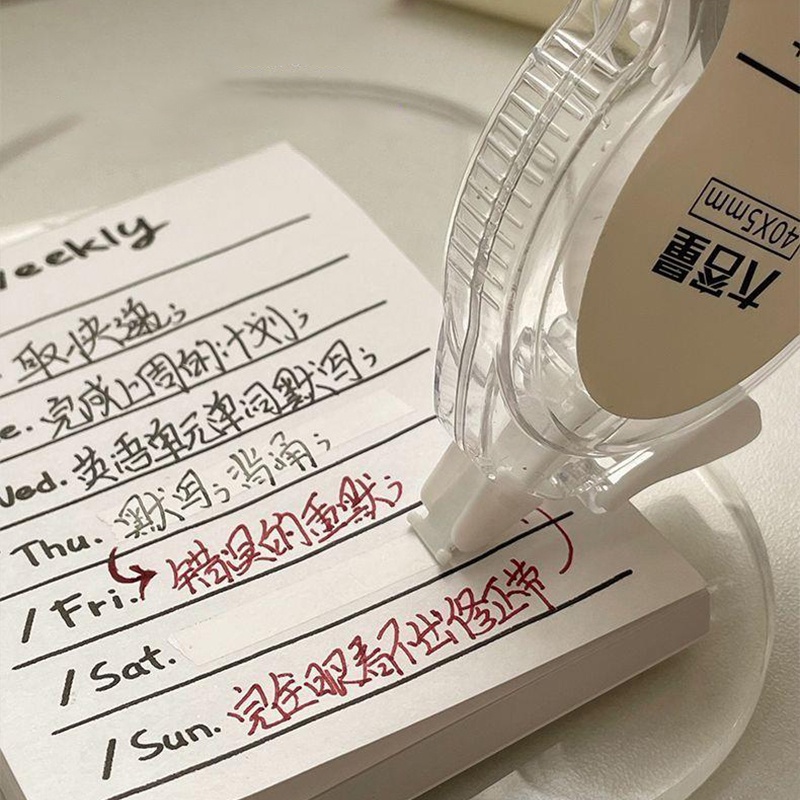 weekly
取快递;
e. 完成上周的计划;
Wed. 英语单元单词默写;
Thu. 默写;背诵;
/ Fri. 错误的重默;
/ Sat.
/ Sun. 完全眼看不出修正带
大容量
40X5mm